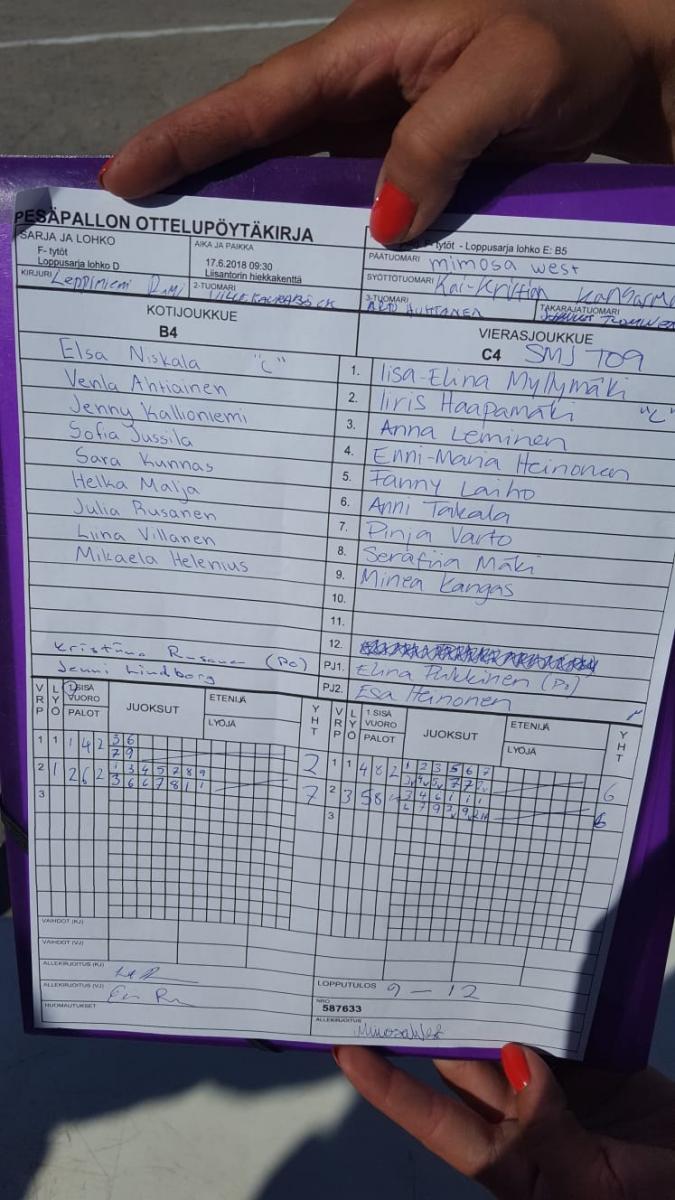 PESÄPALLON OTTELUPÖYTÄKIRJA
SARJA JA LOHKO
F- tytöt
Loppusarja lohko D
AIKA JA PAIKKA
17.6.2018 09:30
Liisantorin hiekkakenttä
F- tytöt - Loppusarja lohko E: B5
PÄÄTUOMARI mimosa west
SYÖTTÖTUOMARI Kai-Kristian Kangasmä
KIRJURI Leppiniemi
2-TUOMARI
3-TUOMARI HUHTANEN
TAKARAJATUOMARI
KOTIJOUKKUE
B4
VIERASJOUKKUE
C4 SMJ T09
Elsa Niskala "C"
1. Iisa-Elina Myllymäki
Venla Ahtiainen
2. Iiris Haapamäki "C"
Jenny Kallioniemi
3. Anna Leminen
Sofia Jussila
4. Enni-Maria Heinonen
Sara Kunnas
5. Fanny Laiho
Helka Malja
6. Anni Takala
Julia Rusanen
7. Pinja Varto
Liina Villanen
8. Serafiia Mäki
Mikaela Helenius
9. Minea Kangas
10.
11.
12.
Kristiina Rusanen (PO)
PJ1. Elina Pulkkinen (Po)
Jenni Lindborg
PJ2. Esa Heinonen
VRP LYÖ 1 SISÄ VUORO PALOT JUOKSUT ETENIJÄ LYÖJÄ YHT
VRP LYÖ 1 SISÄ VUORO PALOT JUOKSUT ETENIJÄ LYÖJÄ YHT
1 1 1 4 2 3 6 2
7 9
1 1 4 8 2 1 2 3 5 6 7 6
2 1 2 6 2 1 3 4 5 7 8 9 7
3 6 6 7 8 1 1
2 3 5 8
3
3
VAIHDOT (KJ)
VAIHDOT (VJ)
ALLEKIRJOITUS (KJ)
ALLEKIRJOITUS (VJ)
HUOMAUTUKSET
LOPPUTULOS 9 - 12
NRO
587633
ALLEKIRJOITUS
Mimosa West